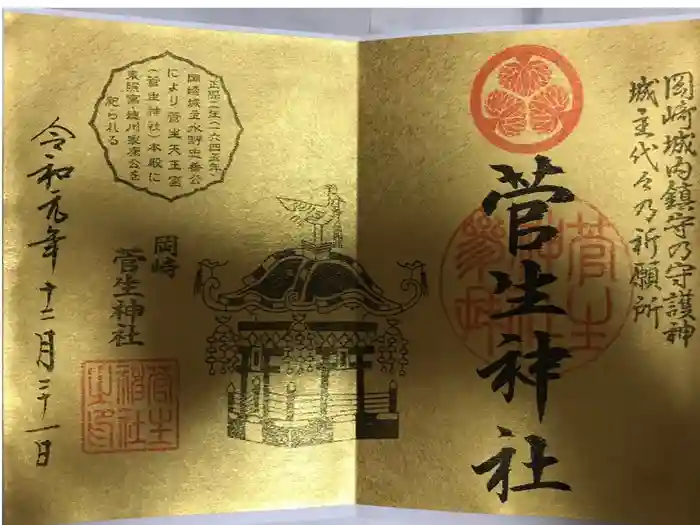 岡崎城内鎮守の守護神
城主代々乃祈願所
菅生神社
正保二年(一六四五年)
岡崎城主水野忠善公
により菅生天王宮
(菅生神社)本殿に
東照宮・徳川家康公を
祀られる
岡崎
菅生神社
令和元年十二月三十一日